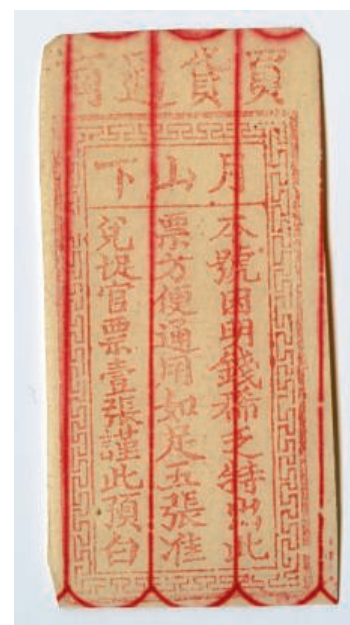 買貨通商
月山下
本號因明錢稀乏特出此
票方便通用如足五張准
兌從官票壹張謹此預白